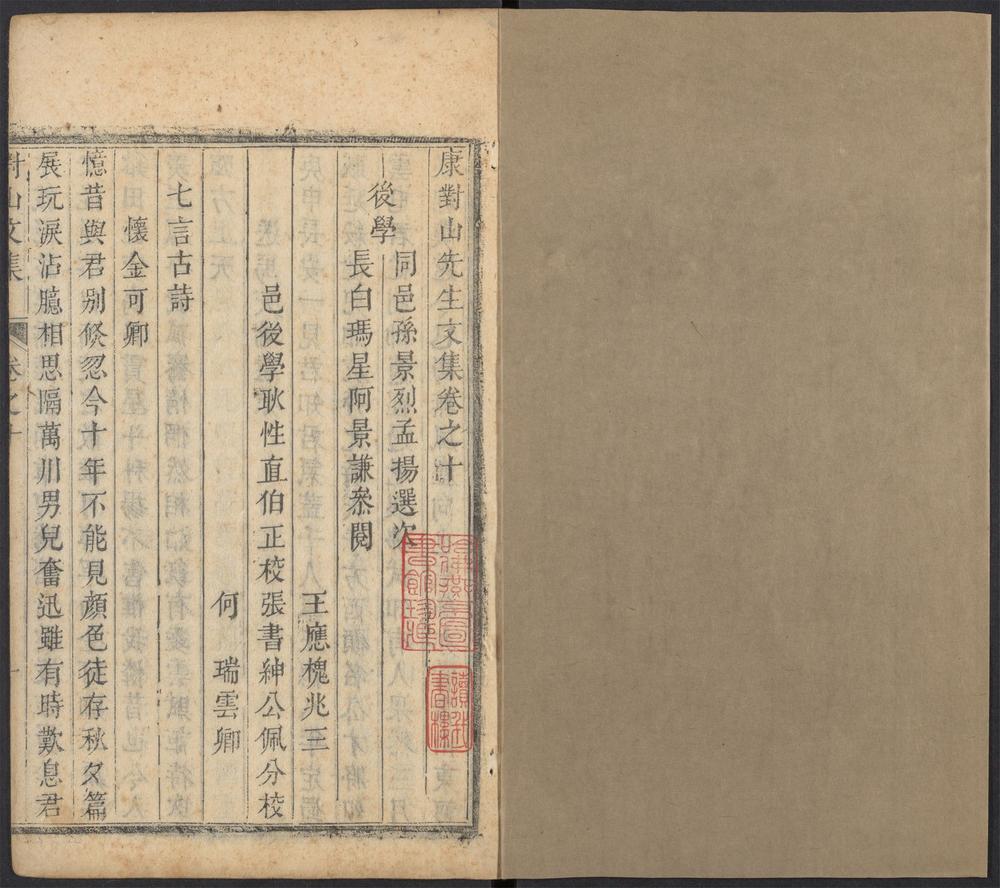 康對山先生文集卷之十
後學
同邑孫景烈孟揚選次
長白瑪星阿景謙叅閱
王應槐兆三
邑後學耿性直伯正校張書紳公佩分校
何瑞雲卿
七言古詩
懷金可卿
憶昔與君别倐忽今十年不能見顔色徒存秋夕篇
展玩淚沾臆相思隔萬川男兒奮迅雖有時歎息君
對山文集 卷之十
讀我書樓